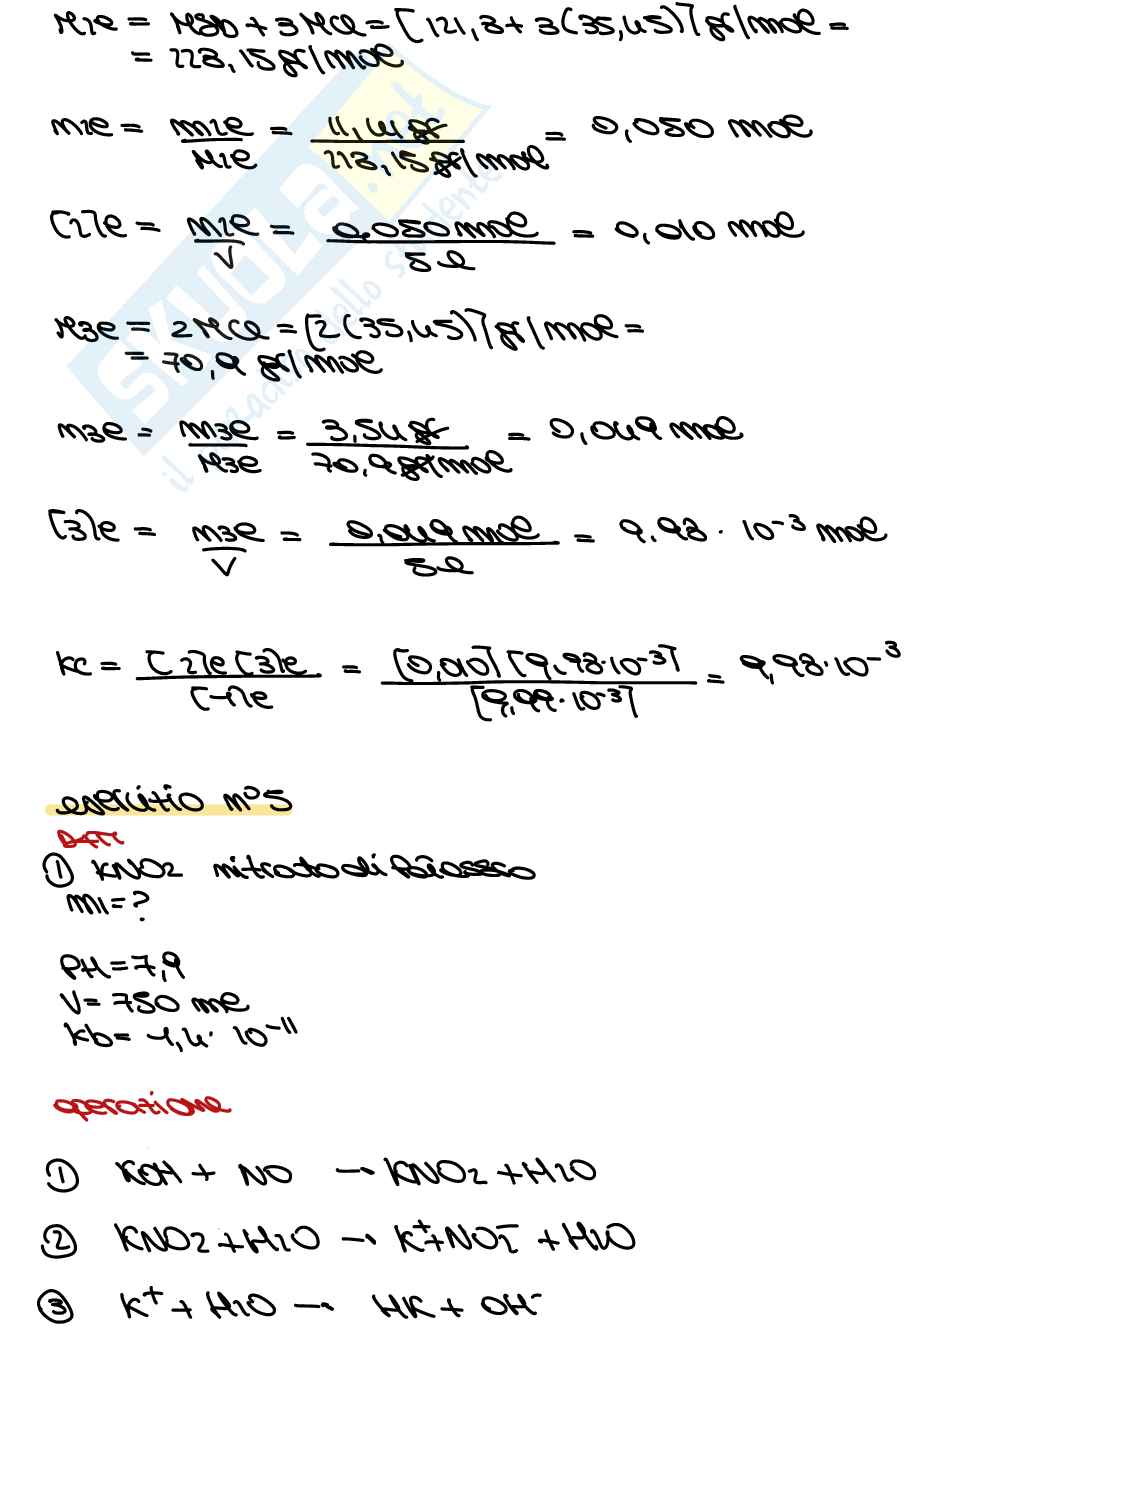 M2e = MSb + 3 MCl = [121,8 + 3(35,45)] gr/mol =
= 228,15 gr/mol
n2e = m2e / M2e = 11,41 gr / 228,15 gr/mol = 0,050 mol
[2]e = n2e / V = 0,050 mol / 5 l = 0,010 mol
M3e = 2 MCl = [2(35,45)] gr/mol =
= 70,9 gr/mol
n3e = m3e / M3e = 3,54 gr / 70,9 gr/mol = 0,049 mol
[3]e = n3e / V = 0,049 mol / 5 l = 9,98 · 10⁻³ mol
kc = [2]e [3]e / [1]e = [0,010] [9,98·10⁻³] / [9,99·10⁻³] = 9,98·10⁻³
esercizio n° 5
Dati
① KNO2 nitrato di potassio
m1 = ?
PH = 7,9
V = 750 ml
kb = 1,4 · 10⁻¹¹
operazione
① KOH + NO → KNO2 + H2O
② KNO2 + H2O → K⁺ + NO2⁻ + H2O
③ K⁺ + H2O → HK + OH⁻
SKUOLA.net
il paradiso dello studente